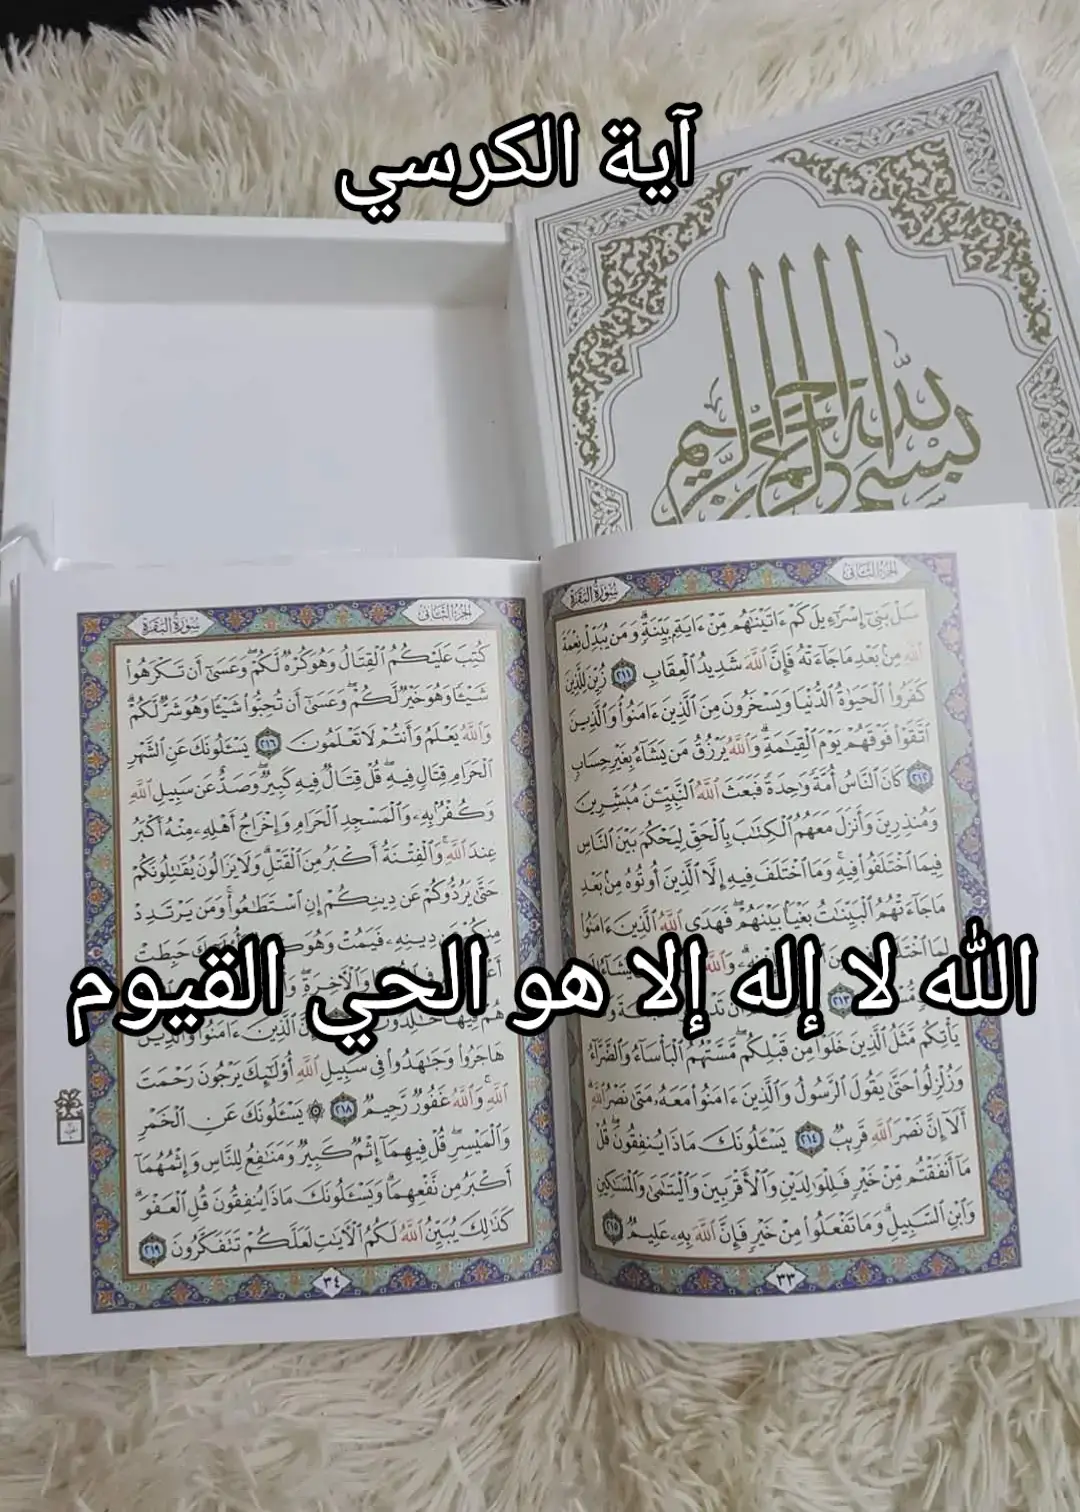 آية الكرسي
بسم الله الرحمن الرحيم
الجزء الثاني
سورة البقرة
سَلْ بَنِىٓ إِسْرَٰٓءِيلَ كَمْ ءَاتَيْنَٰهُم مِّنْ ءَايَةٍۭ بَيِّنَةٍۗ وَمَن يُبَدِّلْ نِعْمَةَ
ٱللَّهِ مِنۢ بَعْدِ مَا جَآءَتْهُ فَإِنَّ ٱللَّهَ شَدِيدُ ٱلْعِقَابِ ٢١١ زُيِّنَ لِلَّذِينَ
كَفَرُوا۟ ٱلْحَيَوٰةُ ٱلدُّنْيَا وَيَسْخَرُونَ مِنَ ٱلَّذِينَ ءَامَنُوا۟ۘ وَٱلَّذِينَ
ٱتَّقَوْا۟ فَوْقَهُمْ يَوْمَ ٱلْقِيَٰمَةِۗ وَٱللَّهُ يَرْزُقُ مَن يَشَآءُ بِغَيْرِ حِسَابٍ
٢١٢ كَانَ ٱلنَّاسُ أُمَّةً وَٰحِدَةً فَبَعَثَ ٱللَّهُ ٱلنَّبِيِّـۧنَ مُبَشِّرِينَ
وَمُنذِرِينَ وَأَنزَلَ مَعَهُمُ ٱلْكِتَٰبَ بِٱلْحَقِّ لِيَحْكُمَ بَيْنَ ٱلنَّاسِ
فِيمَا ٱخْتَلَفُوا۟ فِيهِۚ وَمَا ٱخْتَلَفَ فِيهِ إِلَّا ٱلَّذِينَ أُوتُوهُ مِنۢ بَعْدِ
مَا جَآءَتْهُمُ ٱلْبَيِّنَٰتُ بَغْيًۢا بَيْنَهُمْۖ فَهَدَى ٱللَّهُ ٱلَّذِينَ ءَامَنُوا۟
الله لا إله إلا هو الحي القيوم
يَأْتِكُم مَّثَلُ ٱلَّذِينَ خَلَوْا۟ مِن قَبْلِكُمۖ مَّسَّتْهُمُ ٱلْبَأْسَآءُ وَٱلضَّرَّآءُ
وَزُلْزِلُوا۟ حَتَّىٰ يَقُولَ ٱلرَّسُولُ وَٱلَّذِينَ ءَامَنُوا۟ مَعَهُۥ مَتَىٰ نَصْرُ ٱللَّهِۗ
أَلَآ إِنَّ نَصْرَ ٱللَّهِ قَرِيبٌ ٢١٤ يَسْـَٔلُونَكَ مَاذَا يُنفِقُونَۖ قُلْ
مَآ أَنفَقْتُم مِّنْ خَيْرٍ فَلِلْوَٰلِدَيْنِ وَٱلْأَقْرَبِينَ وَٱلْيَتَٰمَىٰ وَٱلْمَسَٰكِينِ
وَٱبْنِ ٱلسَّبِيلِۗ وَمَا تَفْعَلُوا۟ مِنْ خَيْرٍ فَإِنَّ ٱللَّهَ بِهِۦ عَلِيمٌ ٢١٥
٣٣
الجزء الثاني
سورة البقرة
كُتِبَ عَلَيْكُمُ ٱلْقِتَالُ وَهُوَ كُرْهٌ لَّكُمْۖ وَعَسَىٰٓ أَن تَكْرَهُوا۟
شَيْـًٔا وَهُوَ خَيْرٌ لَّكُمْۖ وَعَسَىٰٓ أَن تُحِبُّوا۟ شَيْـًٔا وَهُوَ شَرٌّ لَّكُمْۗ
وَٱللَّهُ يَعْلَمُ وَأَنتُمْ لَا تَعْلَمُونَ ٢١٦ يَسْـَٔلُونَكَ عَنِ ٱلشَّهْرِ
ٱلْحَرَامِ قِتَالٍ فِيهِۖ قُلْ قِتَالٌ فِيهِ كَبِيرٌۖ وَصَدٌّ عَن سَبِيلِ ٱللَّهِ
وَكُفْرٌۢ بِهِۦ وَٱلْمَسْجِدِ ٱلْحَرَامِ وَإِخْرَاجُ أَهْلِهِۦ مِنْهُ أَكْبَرُ
عِندَ ٱللَّهِۚ وَٱلْفِتْنَةُ أَكْبَرُ مِنَ ٱلْقَتْلِۗ وَلَا يَزَالُونَ يُقَٰتِلُونَكُمْ
حَتَّىٰ يَرُدُّوكُمْ عَن دِينِكُمْ إِنِ ٱسْتَطَٰعُوا۟ۚ وَمَن يَرْتَدِدْ
هَاجَرُوا۟ وَجَٰهَدُوا۟ فِى سَبِيلِ ٱللَّهِ أُو۟لَٰٓئِكَ يَرْجُونَ رَحْمَتَ
ٱللَّهِۚ وَٱللَّهُ غَفُورٌ رَّحِيمٌ ٢١٨ ۞ يَسْـَٔلُونَكَ عَنِ ٱلْخَمْرِ
وَٱلْمَيْسِرِۖ قُلْ فِيهِمَآ إِثْمٌ كَبِيرٌ وَمَنَٰفِعُ لِلنَّاسِ وَإِثْمُهُمَآ
أَكْبَرُ مِن نَّفْعِهِمَاۗ وَيَسْـَٔلُونَكَ مَاذَا يُنفِقُونَ قُلِ ٱلْعَفْوَۗ
كَذَٰلِكَ يُبَيِّنُ ٱللَّهُ لَكُمُ ٱلْـَٔايَٰتِ لَعَلَّكُمْ تَتَفَكَّرُونَ ٢١٩
٣٤